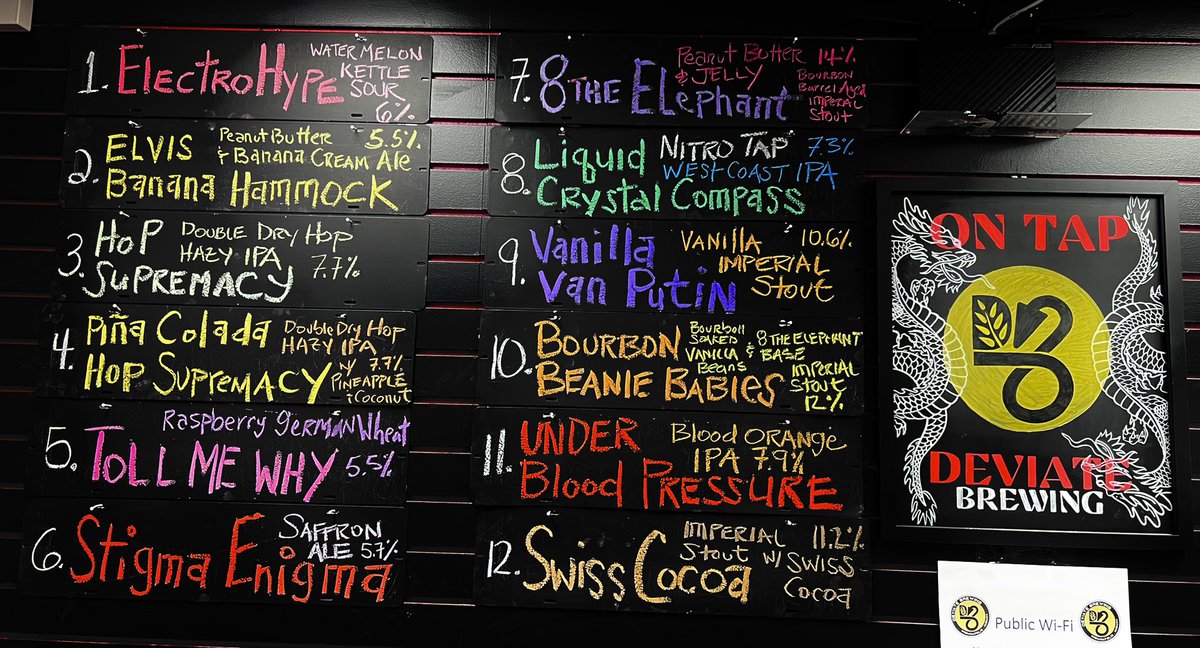 1. ElectroHype
WATERMELON
KETTLE
SOUR
6%
2. ELVIS
Banana HAMMOCK
Peanut Butter 5.5%
& Banana CREAM Ale
3. HOP
SUPREMACY
DOUBLE DRY HOP
HAZY IPA
7.7%
4. Piña Colada
HOP SUPREMACY
Double Dry Hop
HAZY IPA
W/ 7.7%
PINEAPPLE
& COCONUT
Raspberry GERMAN Wheat
5. TOLL ME WHY 5.5%
6. Stigma Enigma
SAFFRON
ALE 5.7%
7. 8 THE ELephant
Peanut Butter 14%
& JELLY
Bourbon
Barrel Aged
IMPERIAL
Stout
8. Liquid
Crystal Compass
NITRO TAP 7.3%
WEST COAST IPA
9. Vanilla
Van Putin
VANILLA 10.6%
IMPERIAL
Stout
10. BOURBON
BEANIE BABIES
Bourbon
SOAKED
VANILLA &
Beans
8 THE ELEPHANT
BASE
IMPERIAL
Stout
12%
11. UNDER
Blood PRESSURE
Blood ORANGE
IPA 7.9%
12. Swiss Cocoa
IMPERIAL 11.2%
Stout W/ SWISS
Cocoa
ON TAP
DEVIATE
BREWING
Public Wi-Fi